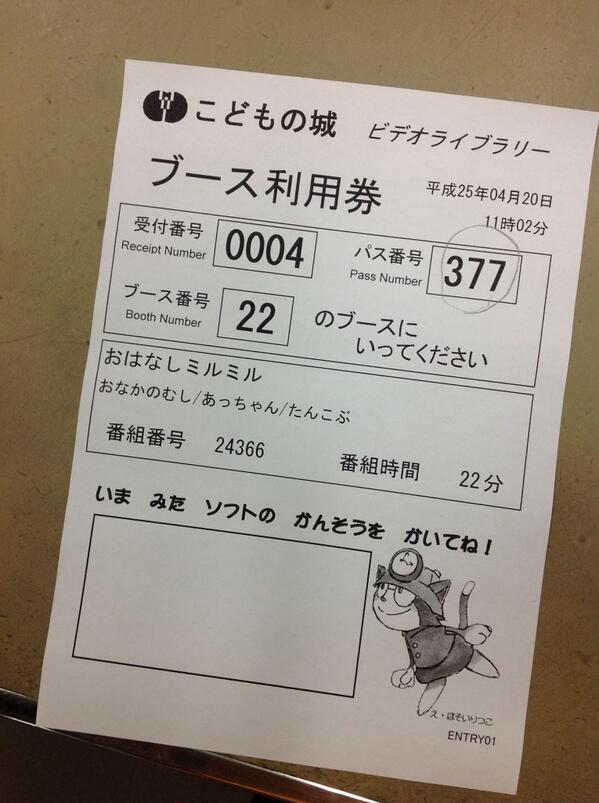 こどもの城 ビデオライブラリー
ブース利用券
平成25年04月20日
11時02分
受付番号 0004 パス番号 377
Receipt Number Pass Number
ブース番号 22 のブースに
Booth Number いってください
おはなしミルミル
おなかのむし/あっちゃん/たんこぶ
番組番号 24366 番組時間 22分
いま みた ソフトの かんそうを かいてね!
え・ほそいりつこ
ENTRY01